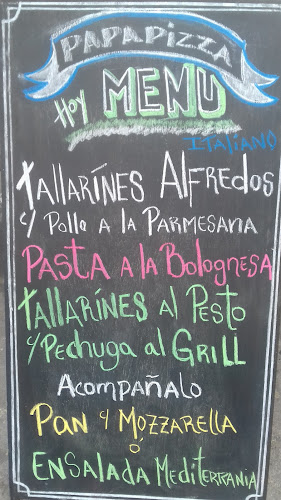 PAPAPIZZA
Hoy MENU
ITALIANO
TALLARÍNES ALFREDOS
y Pollo a la PARMESANA
PASTA a la Bolognesa
TALLARÍNES al Pesto
y Pechuga al GRILL
Acompañalo
PAN y Mozzarella
ó
ENSALADA MEDITERRANIA